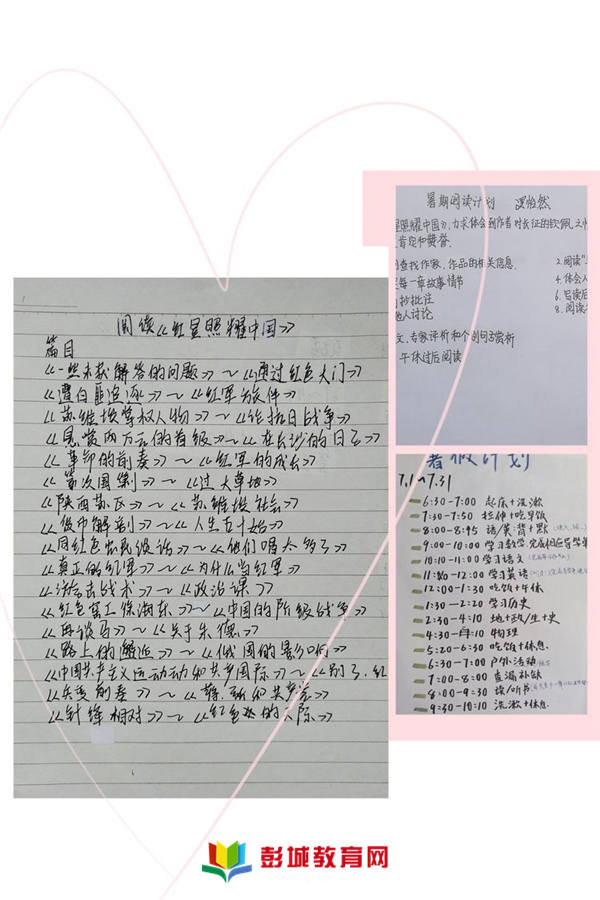 阅读《红星照耀中国》
篇目
《一些未获解答的问题》~《通过红色大门》
《遭白匪追逐》~《红军旅伴》
《苏维埃掌权人物》~《论抗日战争》
《悬赏两万元的首级》~《在长沙的日子》
《革命的前奏》~《红军的成长》
《第次围剿》~《过大草地》
《陕西苏区》~《苏维埃社会》
《人生五十始》
《同红色农民谈话》~《他们唱太多了》
《真正的红军》~《为什么当红军》
《游击战术》~《政治课》
《红色窑工保海东》~《中国的阶级战争》
《再谈马》~《关于朱德》
《路上的邂逅》~《俄国的影响》
《中国共产主义运动动和共产国际》~《别了,红
《兵变前奏》~《蒋、张和共产党》
《针锋相对》~《红色的天际》
暑期阅读计划
星照耀中国》,力求体会到作者对长征的钦佩,之情
肯定和赞誉.
查找作家、作品的相关信息. 2.阅读"
每一章故事情节 4.体会人
抄批注 6.写读后
他人讨论 8.阅读
文、专家评析和个别句子赏析
午休过后阅读
暑假计划
7.1~7.31
6:30-7:00 起床+洗漱
7:30-7:50 拉伸+吃早饭
8:00-8:45 语/英:背+默
9:00-10:00 学习数学,完成相应导学单
10:10-11:00 学习语文
11:00-12:00 学习英语
12:00-1:30 吃饭+午休
1:30-2:20 学习历史
2:30-4:10 地+政/生+史
4:30-5:10 物理
5:20-6:30 吃饭+休息.
6:30-7:00 户外活动
7:00-8:00 查漏补缺
8:00-9:30 读/听书
9:30-10:10 洗漱+休息.
彭城教育网